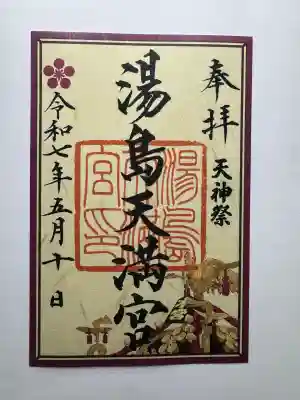 奉拝
天神祭
湯島天満宮
令和七年五月十日